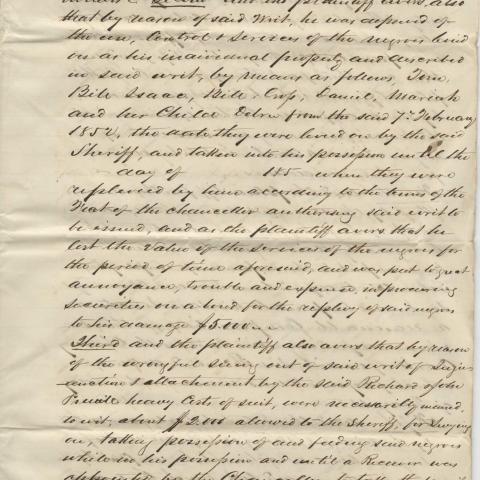 that by reason of said Writ, he was deprived of
the use, Control & Services of the negroes levied
on as his individual property and described
in said writ, by name as follows, Tom,
Bile Isaac, Bile, Crop, Daniel, Mariah
and her Child Debra from the said 7th February
1852, the date they were levied on by the said
Sheriff, and taken into his possession until the
day of 185 when they were
replevied by him according to the terms of the
Fiat of the Chancellor authorising said writ to
be issued, and as the plaintiff avers that he
lost the Value of the Services of the negroes for
the period of time aforesaid, and was put to great
annoyance, trouble and expense, in procuring
Securities on a bond for the replevy of said negroes
to his damage $5.000
Third and the plaintiff also avers that by reason
of the wrongful suing out of said writ of
& attachment by the said Richard & John
heavy Costs of suit, were necessarily incurred,
to wit, about $2.000 allowed to the Sheriff, for levying
on, taking possession of and feeding said negroes
while in his possession and until a Receiver was
appointed by the Chancellor to take